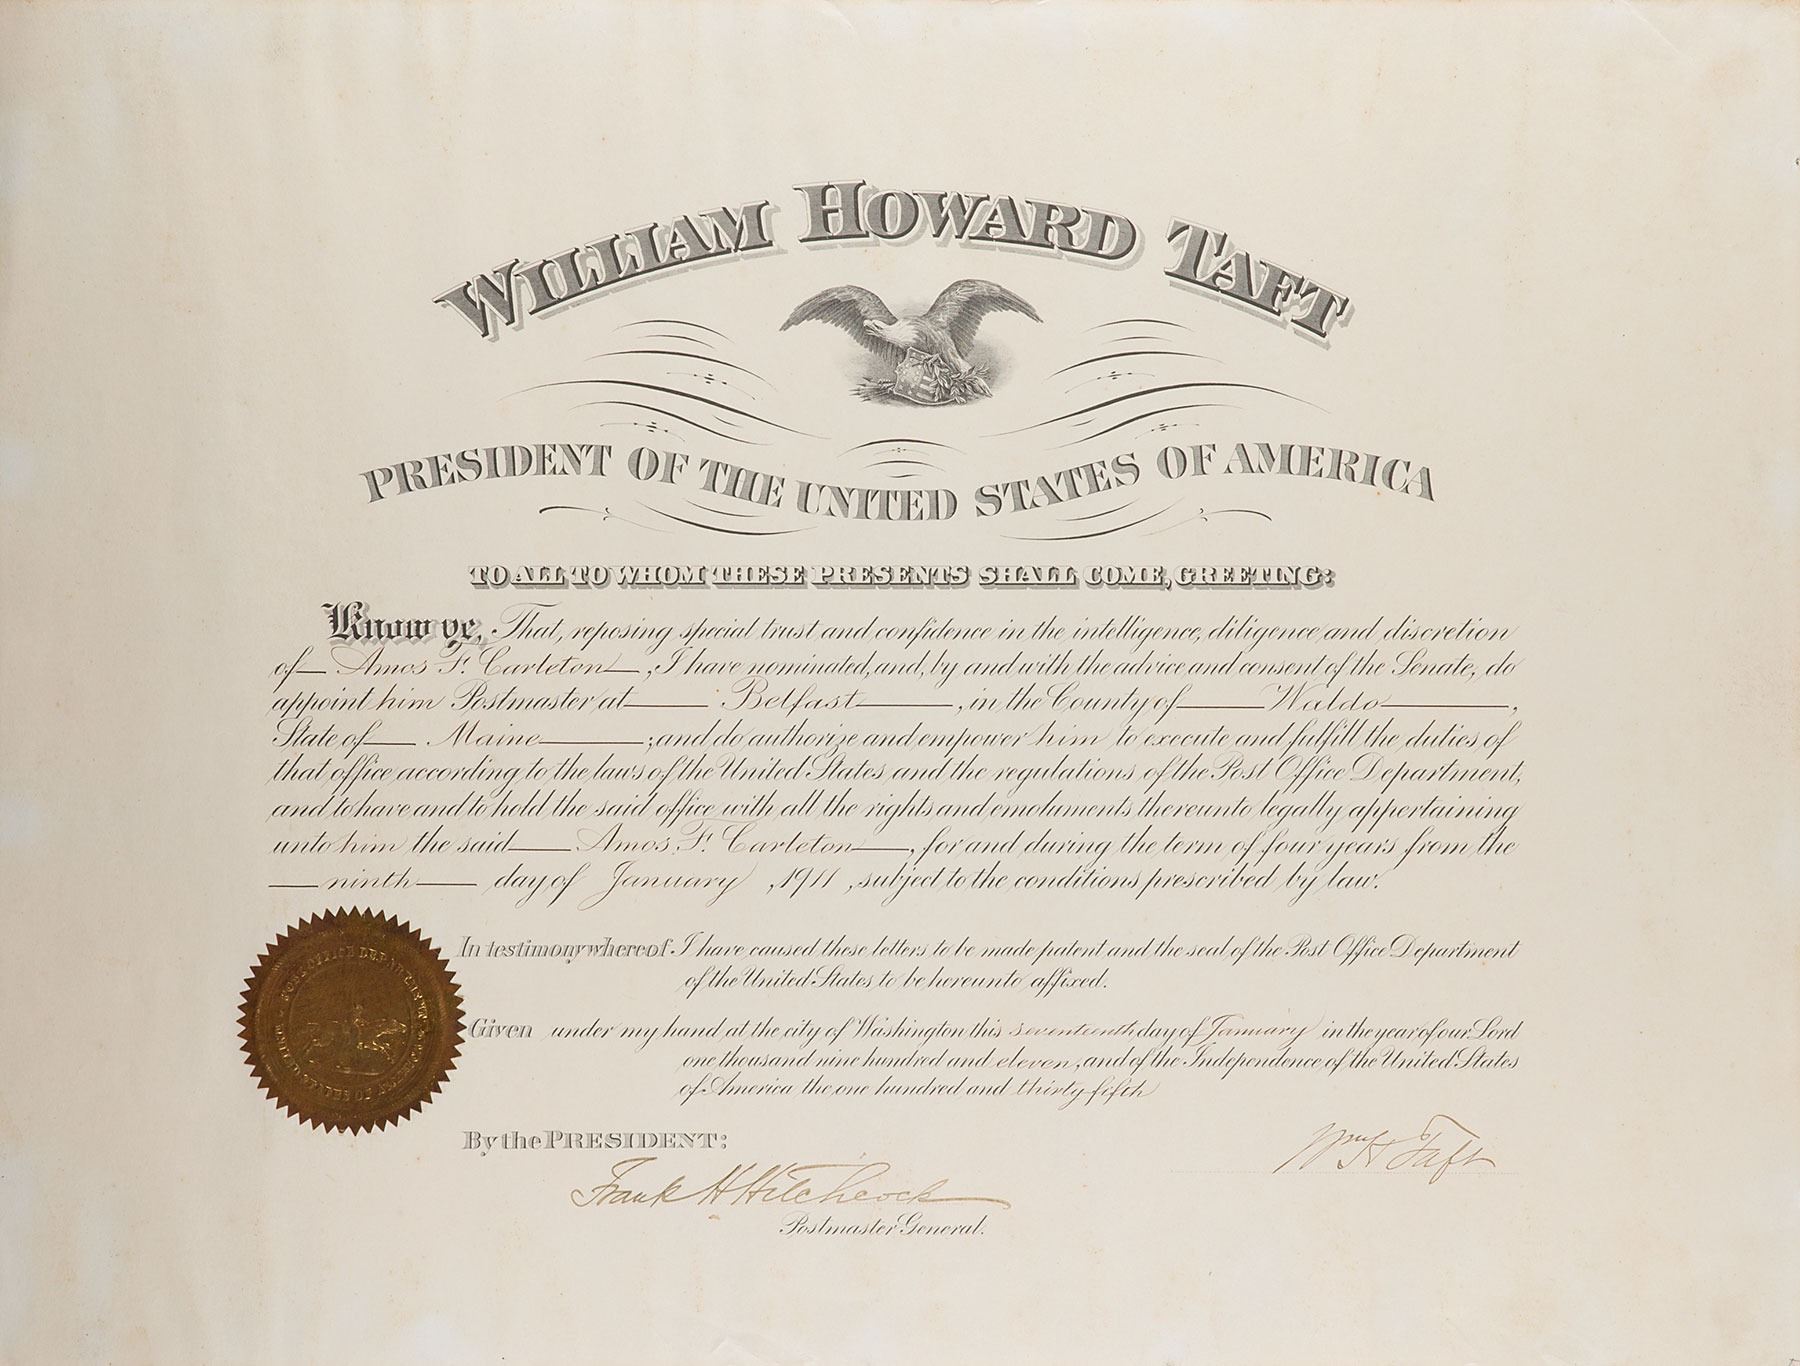 WILLIAM HOWARD TAFT
PRESIDENT OF THE UNITED STATES OF AMERICA
TO ALL TO WHOM THESE PRESENTS SHALL COME, GREETING:
Know ye, That, reposing special trust and confidence in the intelligence, diligence and discretion
of Amos F. Carleton, ; I have nominated, and, by and with the advice and consent of the Senate, do
appoint him Postmaster at Belfast, in the County of Waldo,
State of Maine; and do authorize and empower him to execute and fulfill the duties of
that office according to the laws of the United States and the regulations of the Post Office Department,
and to have and to hold the said office with all the rights and emoluments thereunto legally appertaining
unto him the said Amos F. Carleton, for and during the term of four years from the
ninth day of January, 1911, subject to the conditions prescribed by law.
In testimony whereof I have caused these letters to be made patent and the seal of the Post Office Department
of the United States to be hereunto affixed.
POST OFFICE DEPARTMENT
UNITED STATES OF AMERICA
Given under my hand at the city of Washington this seventeenth day of January in the year of our Lord
one thousand nine hundred and eleven, and of the Independence of the United States
of America the one hundred and thirty-fifth
By the PRESIDENT:
Wm H Taft
Frank H. Hitchcock
Postmaster General.